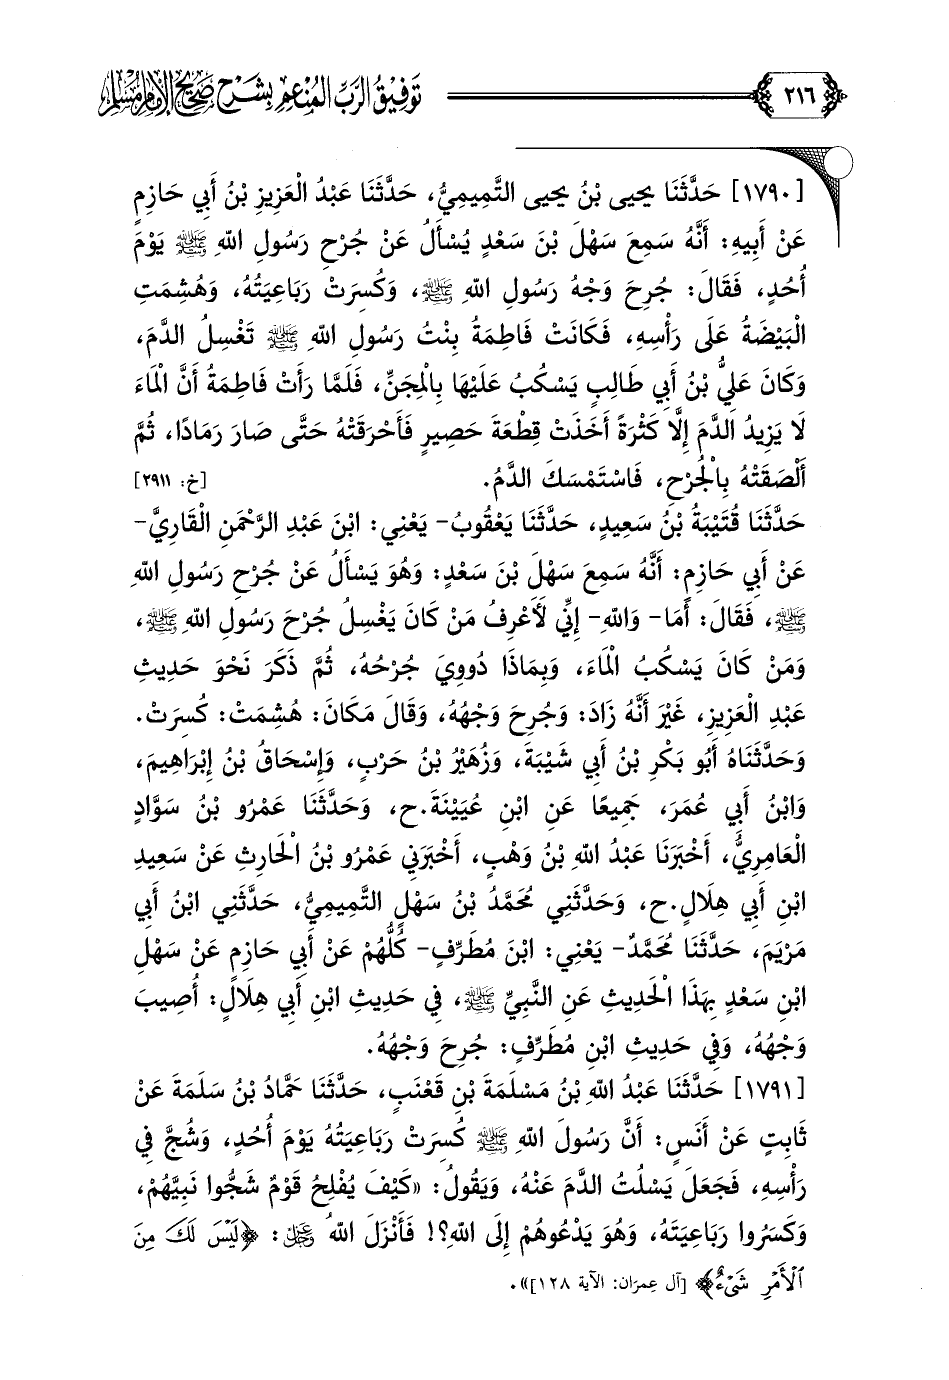 ٢١٦
تَوفِيقُ الرَّبِّ المُنْعِم بِشَرْحِ صَحِيحِ الإِمَامِ مُسْلِم
[١٧٩٠] حَدَّثَنَا يَحيى بْنُ يَحيى التَّمِيمِيُّ، حَدَّثَنَا عَبْدُ الْعَزِيزِ بْنُ أَبِي حَازِمٍ
عَنْ أَبِيهِ: أَنَّهُ سَمِعَ سَهْلَ بْنَ سَعْدٍ يُسْأَلُ عَنْ جُرْحِ رَسُولِ اللهِ ﷺ يَوْمَ
أُحُدٍ، فَقَالَ: جُرِحَ وَجْهُ رَسُولِ اللهِ ﷺ، وَكُسِرَتْ رَبَاعِيَتُهُ، وَهُشِمَتِ
الْبَيْضَةُ عَلَى رَأْسِهِ، فَكَانَتْ فَاطِمَةُ بِنْتُ رَسُولِ اللهِ ﷺ تَغْسِلُ الدَّمَ،
وَكَانَ عَلِيُّ بْنُ أَبِي طَالِبٍ يَسْكُبُ عَلَيْهَا بِالْمِجَنِّ، فَلَمَّا رَأَتْ فَاطِمَةُ أَنَّ الْمَاءَ
لَا يَزِيدُ الدَّمَ إِلَّا كَثْرَةً أَخَذَتْ قِطْعَةَ حَصِيرٍ فَأَحْرَقَتْهُ حَتَّى صَارَ رَمَادًا، ثُمَّ
أَلْصَقَتْهُ بِالْجُرْحِ، فَاسْتَمْسَكَ الدَّمُ. [خ: ٢٩١١]
حَدَّثَنَا قُتَيْبَةُ بْنُ سَعِيدٍ، حَدَّثَنَا يَعْقُوبُ- يَعْنِي: ابْنَ عَبْدِ الرَّحْمَنِ الْقَارِيَّ-
عَنْ أَبِي حَازِمٍ: أَنَّهُ سَمِعَ سَهْلَ بْنَ سَعْدٍ: وَهُوَ يَسْأَلُ عَنْ جُرْحِ رَسُولِ اللهِ
ﷺ، فَقَالَ: أَمَا- وَاللهِ- إِنِّي لَأَعْرِفُ مَنْ كَانَ يَغْسِلُ جُرْحَ رَسُولِ اللهِ ﷺ،
وَمَنْ كَانَ يَسْكُبُ الْمَاءَ، وَبِمَاذَا دُووِيَ جُرْحُهُ، ثُمَّ ذَكَرَ نَحْوَ حَدِيثِ
عَبْدِ الْعَزِيزِ، غَيْرَ أَنَّهُ زَادَ: وَجُرِحَ وَجْهُهُ، وَقَالَ مَكَانَ: هُشِمَتْ: كُسِرَتْ.
وَحَدَّثَنَاهُ أَبُو بَكْرِ بْنُ أَبِي شَيْبَةَ، وَزُهَيْرُ بْنُ حَرْبٍ، وَإِسْحَاقُ بْنُ إِبْرَاهِيمَ،
وَابْنُ أَبِي عُمَرَ، جَمِيعًا عَنِ ابْنِ عُيَيْنَةَ.ح، وَحَدَّثَنَا عَمْرُو بْنُ سَوَّادٍ
الْعَامِرِيُّ، أَخْبَرَنَا عَبْدُ اللهِ بْنُ وَهْبٍ، أَخْبَرَنِي عَمْرُو بْنُ الْحَارِثِ عَنْ سَعِيدِ
ابْنِ أَبِي هِلَالٍ.ح، وَحَدَّثَنِي مُحَمَّدُ بْنُ سَهْلٍ التَّمِيمِيُّ، حَدَّثَنِي ابْنُ أَبِي
مَرْيَمَ، حَدَّثَنَا مُحَمَّدٌ- يَعْنِي: ابْنَ مُطَرِّفٍ- كُلُّهُمْ عَنْ أَبِي حَازِمٍ عَنْ سَهْلِ
ابْنِ سَعْدٍ بِهَذَا الْحَدِيثِ عَنِ النَّبِيِّ ﷺ، فِي حَدِيثِ ابْنِ أَبِي هِلَالٍ: أُصِيبَ
وَجْهُهُ، وَفِي حَدِيثِ ابْنِ مُطَرِّفٍ: جُرِحَ وَجْهُهُ.
[١٧٩١] حَدَّثَنَا عَبْدُ اللهِ بْنُ مَسْلَمَةَ بْنِ قَعْنَبٍ، حَدَّثَنَا حَمَّادُ بْنُ سَلَمَةَ عَنْ
ثَابِتٍ عَنْ أَنَسٍ: أَنَّ رَسُولَ اللهِ ﷺ كُسِرَتْ رَبَاعِيَتُهُ يَوْمَ أُحُدٍ، وَشُجَّ فِي
رَأْسِهِ، فَجَعَلَ يَسْلُتُ الدَّمَ عَنْهُ، وَيَقُولُ: «كَيْفَ يُفْلِحُ قَوْمٌ شَجُّوا نَبِيَّهُمْ،
وَكَسَرُوا رَبَاعِيَتَهُ، وَهُوَ يَدْعُوهُمْ إِلَى اللهِ؟! فَأَنْزَلَ اللهُ ﷻ: ﴿لَيْسَ لَكَ مِنَ
ٱلْأَمْرِ شَىْءٌ﴾ [آل عِمرَان: الآية ١٢٨]».